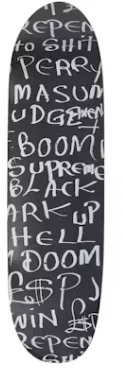 REPEN
to SHIT
PERRY
MASUM
UDGEMENT
BOOM
SUPREME
BLACK
ARK UP
HELL
DOOM
£$P J
WIN £$P
REPEN
to SHIT